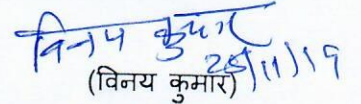 विनय कुमार
25/11/19
(विनय कुमार)